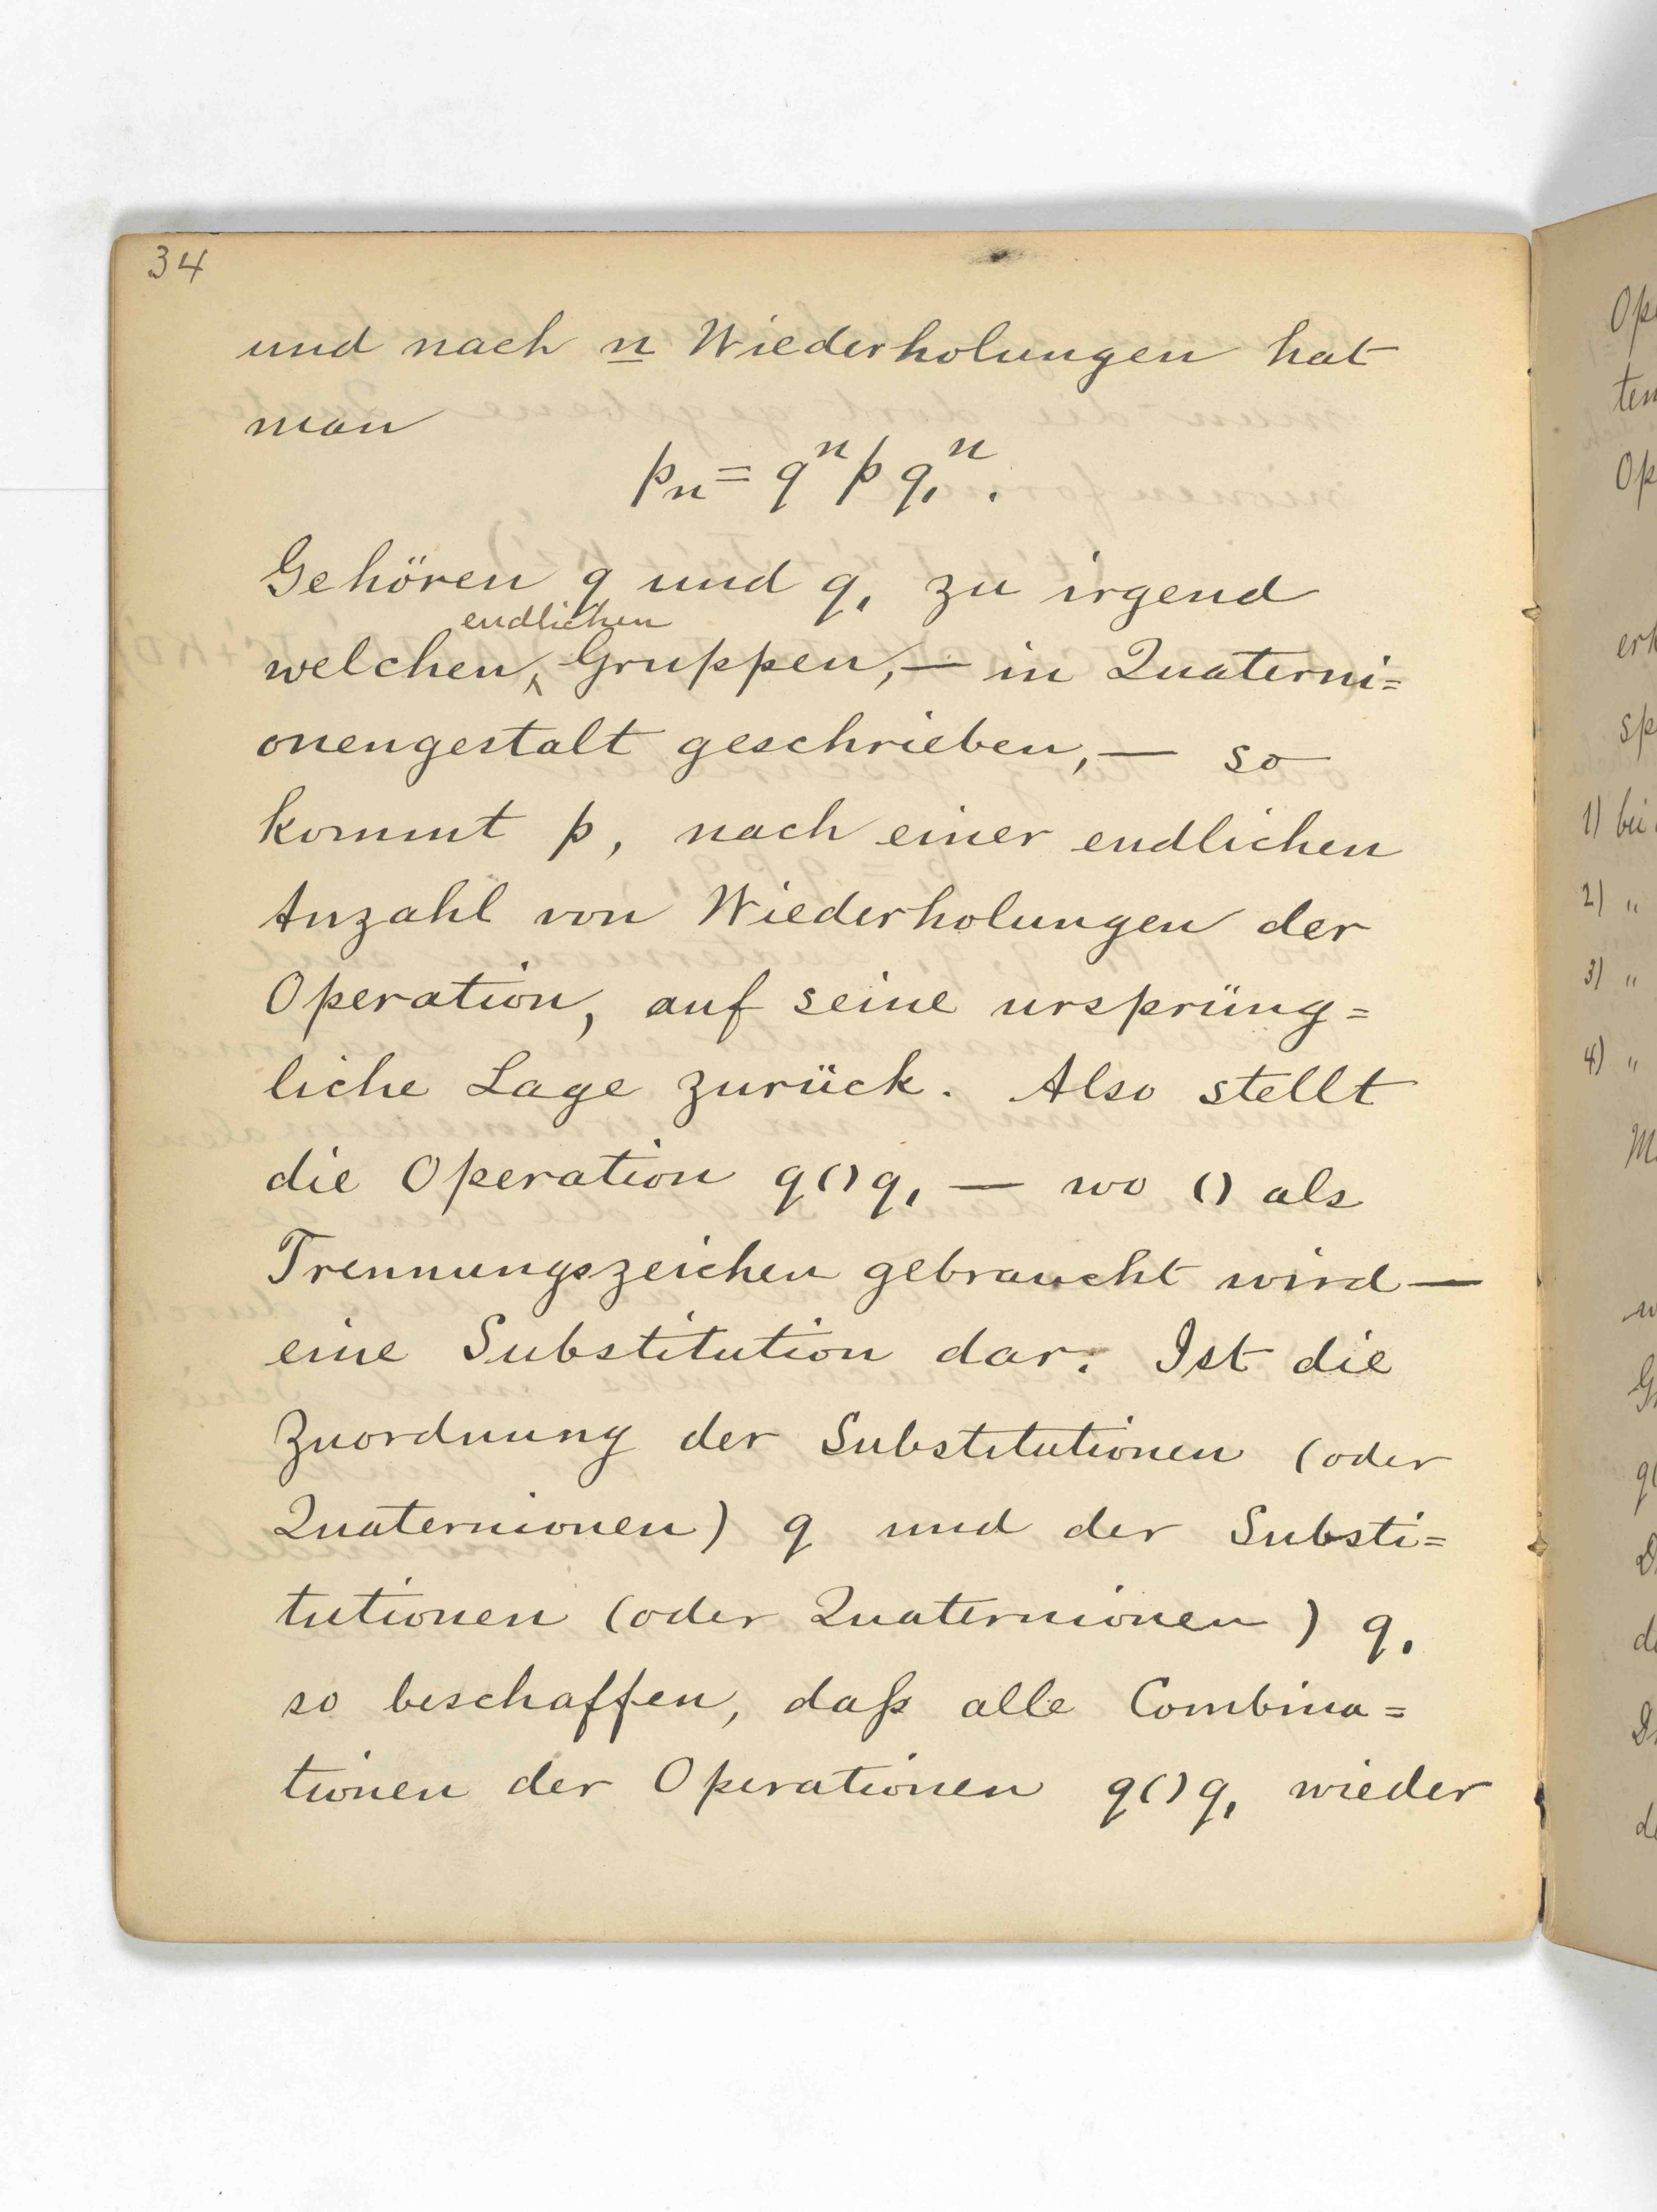 34
und nach n Wiederholungen hat
man
pn = qⁿ p q,ⁿ.
Gehören q und q, zu irgend
endlichen
welchen, Gruppen, — in Quaterni=
onengestalt geschrieben, — so
kommt p, nach einer endlichen
Anzahl von Wiederholungen der
Operation, auf seine ursprüng=
liche Lage zurück. Also stellt
die Operation q()q, — wo () als
Trennungszeichen gebraucht wird —
eine Substitution dar. Ist die
Zuordnung der Substitutionen (oder
Quaternionen) q und der Substi=
tutionen (oder Quaternionen) q,
so beschaffen, daß alle Combina=
tionen der Operationen q()q, wieder
1)
2) "
3) "
4) "